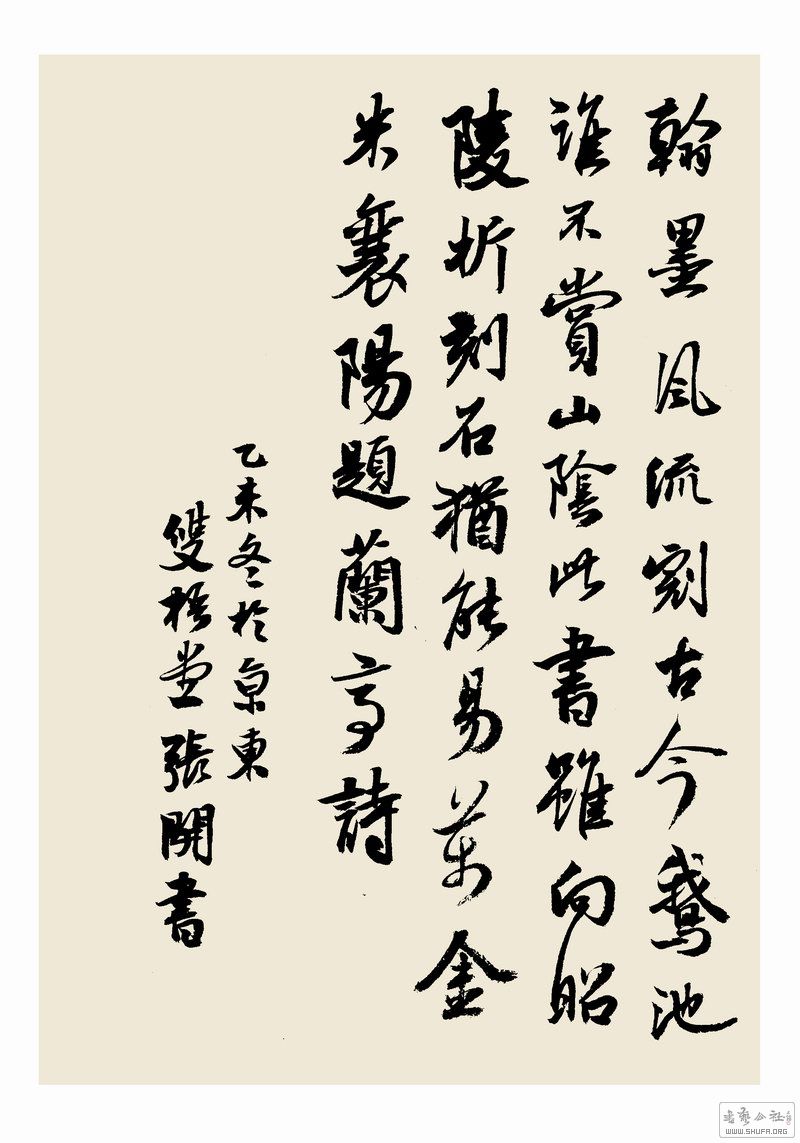 翰墨風流割古今鵝池
誰不賞山陰此書雖向昭
陵折刻石猶能易萬金
米襄陽題蘭亭詩
乙未冬於京東
雙梧堂張開書
書藝公社
WWW.SHUFA.ORG